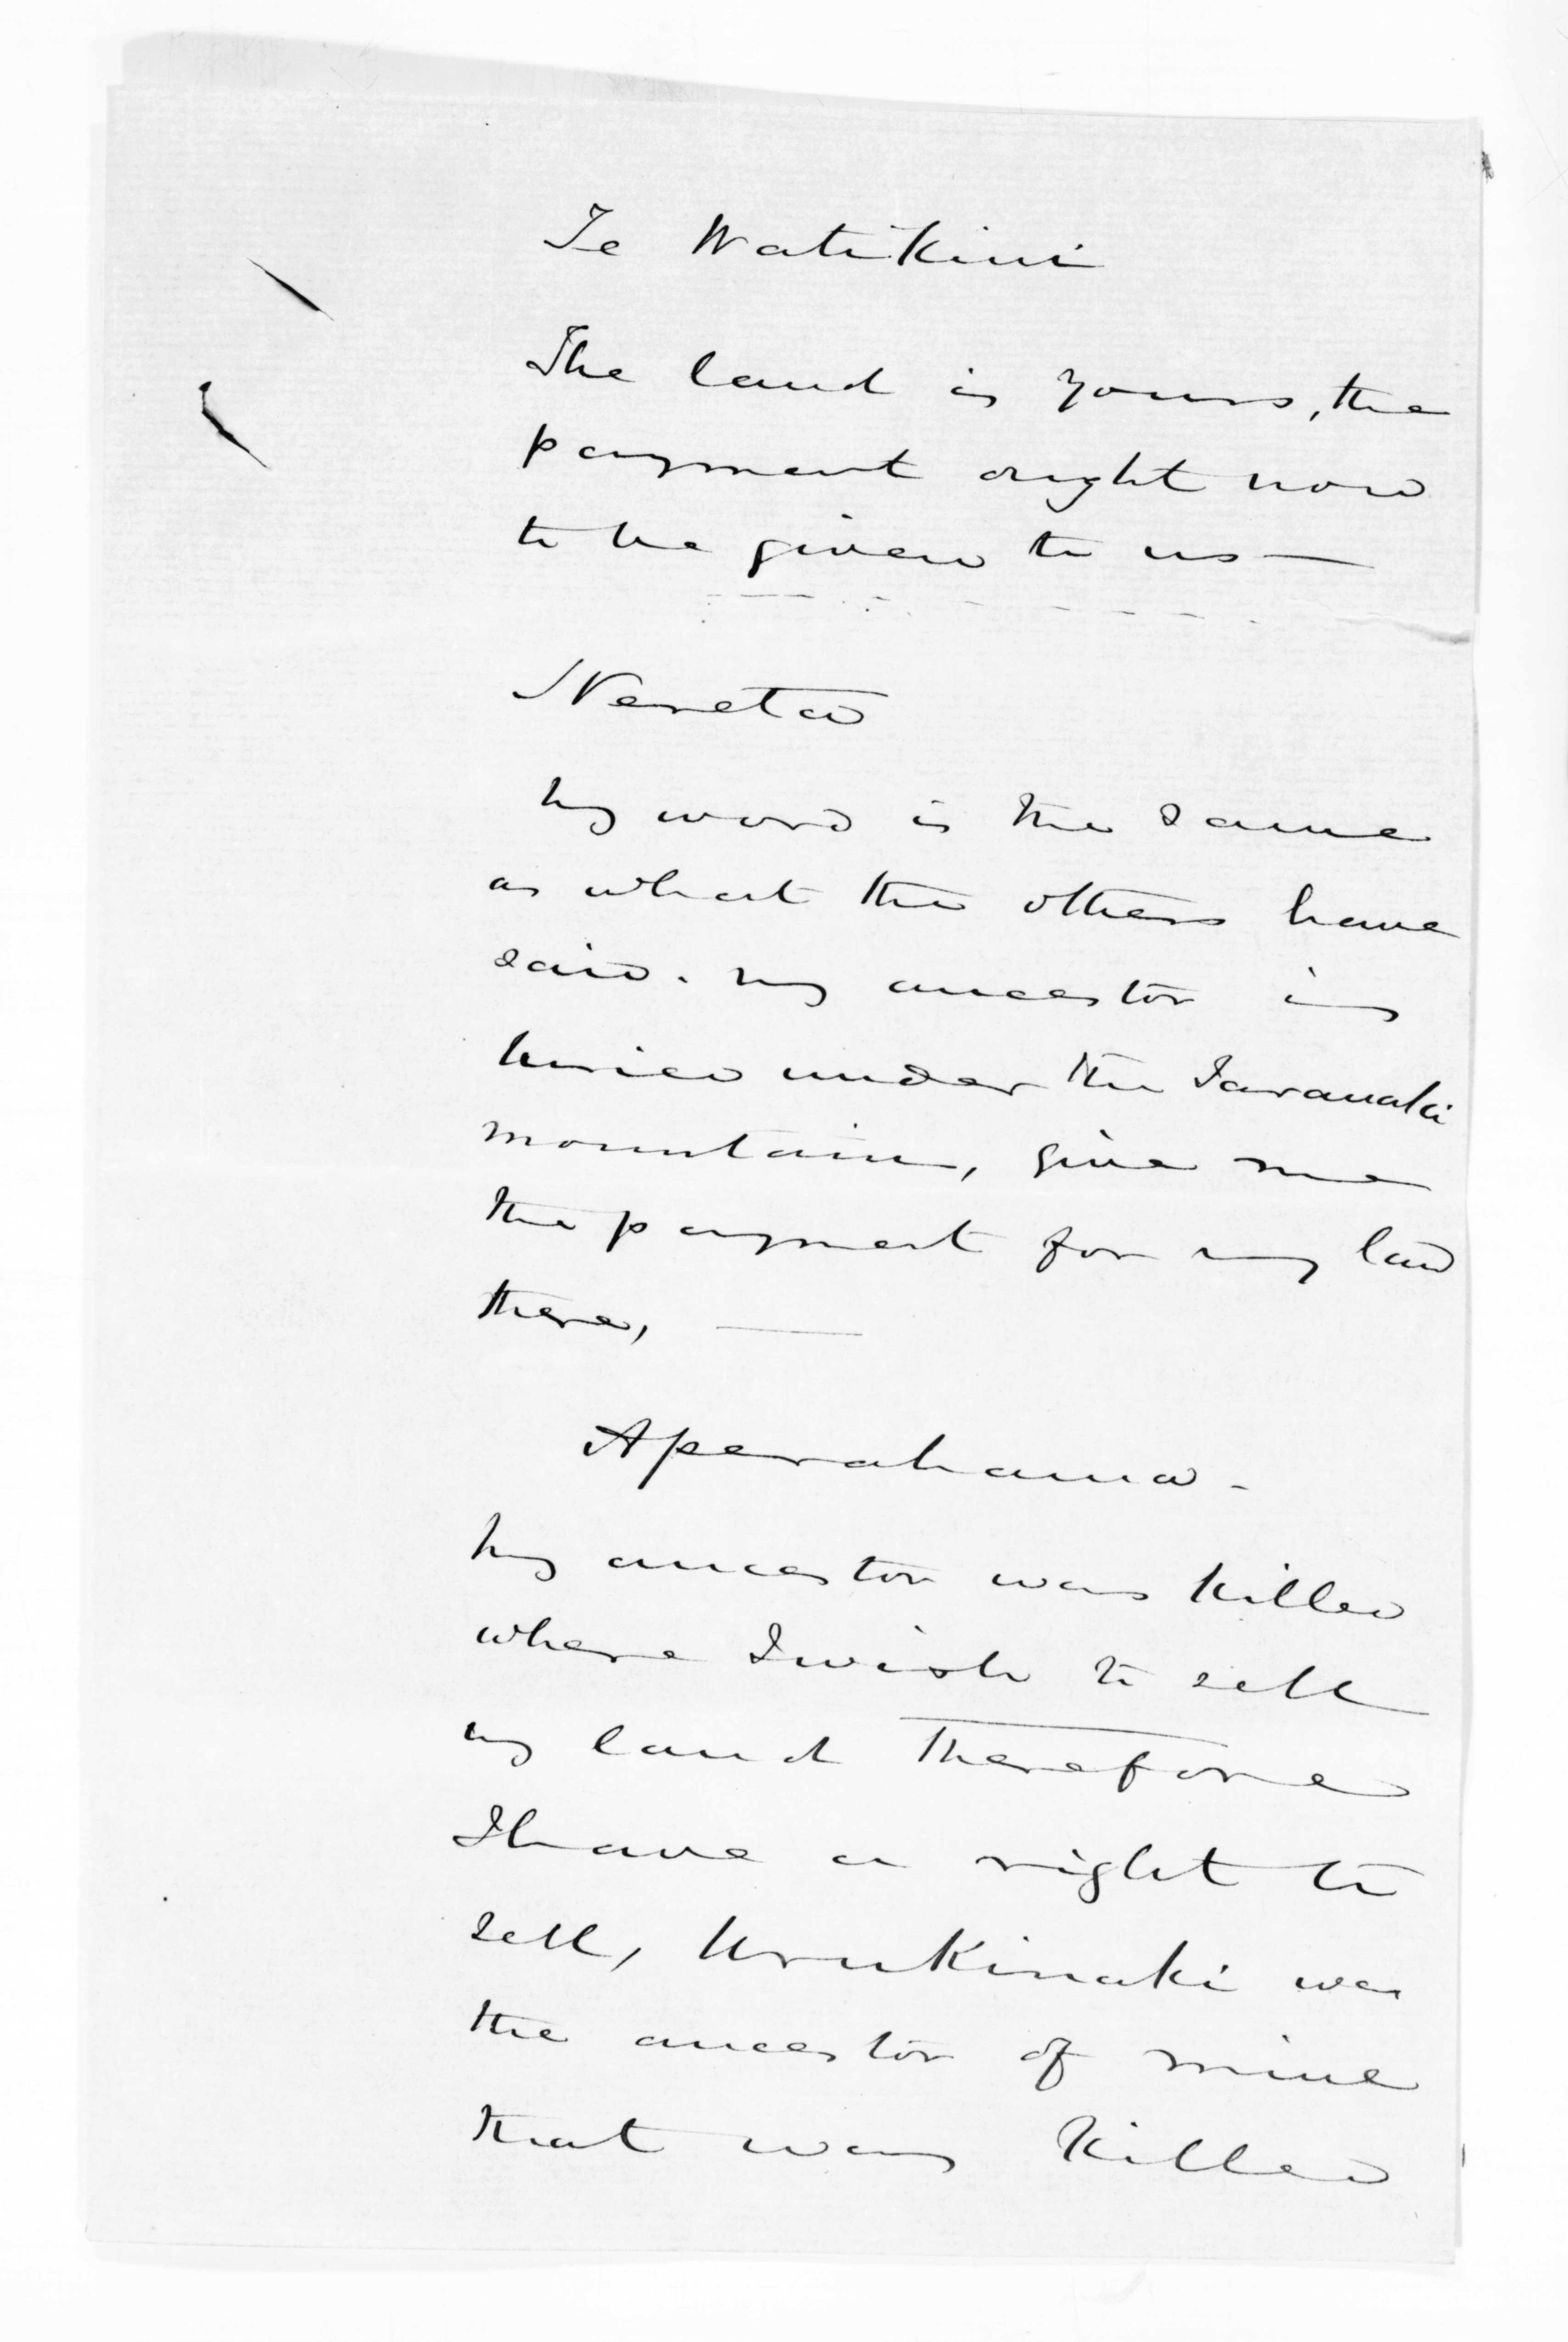 Te Watikini
The land is yours, the
payment ought now
to be given to us —
Nereta
My word is the same
as what the others have
said. My ancestor is
buried under the Taranaki
mountain, give me
the payment for my land
there, —
Aperahama -
My ancestor was killed
where I wish to sell
my land therefore
I have a right to
sell, Urukinaki was
the ancestor of mine
that was killed